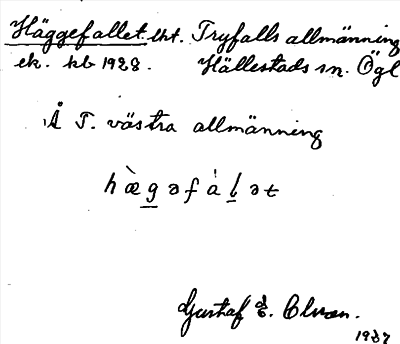 Häggefallet lht. Tryfalls allmänning
ek. kb 1928. Hällestads sn. Ögl
Å T. västra allmänning
hæ̀gəfálət
Gustaf E.
1937